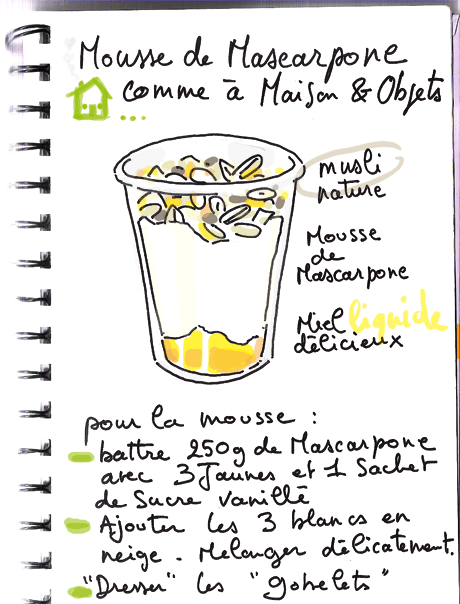 Mousse de Mascarpone
comme à Maison & Objets
...
musli
nature
Mousse
de
Mascarpone
Miel liquide
délicieux
pour la mousse :
battre 250g de Mascarpone
avec 3 Jaunes et 1 Sachet
de Sucre vanillé
Ajouter les 3 blancs en
neige. Mélanger délicatement.
"Dresser" les "gobelets"